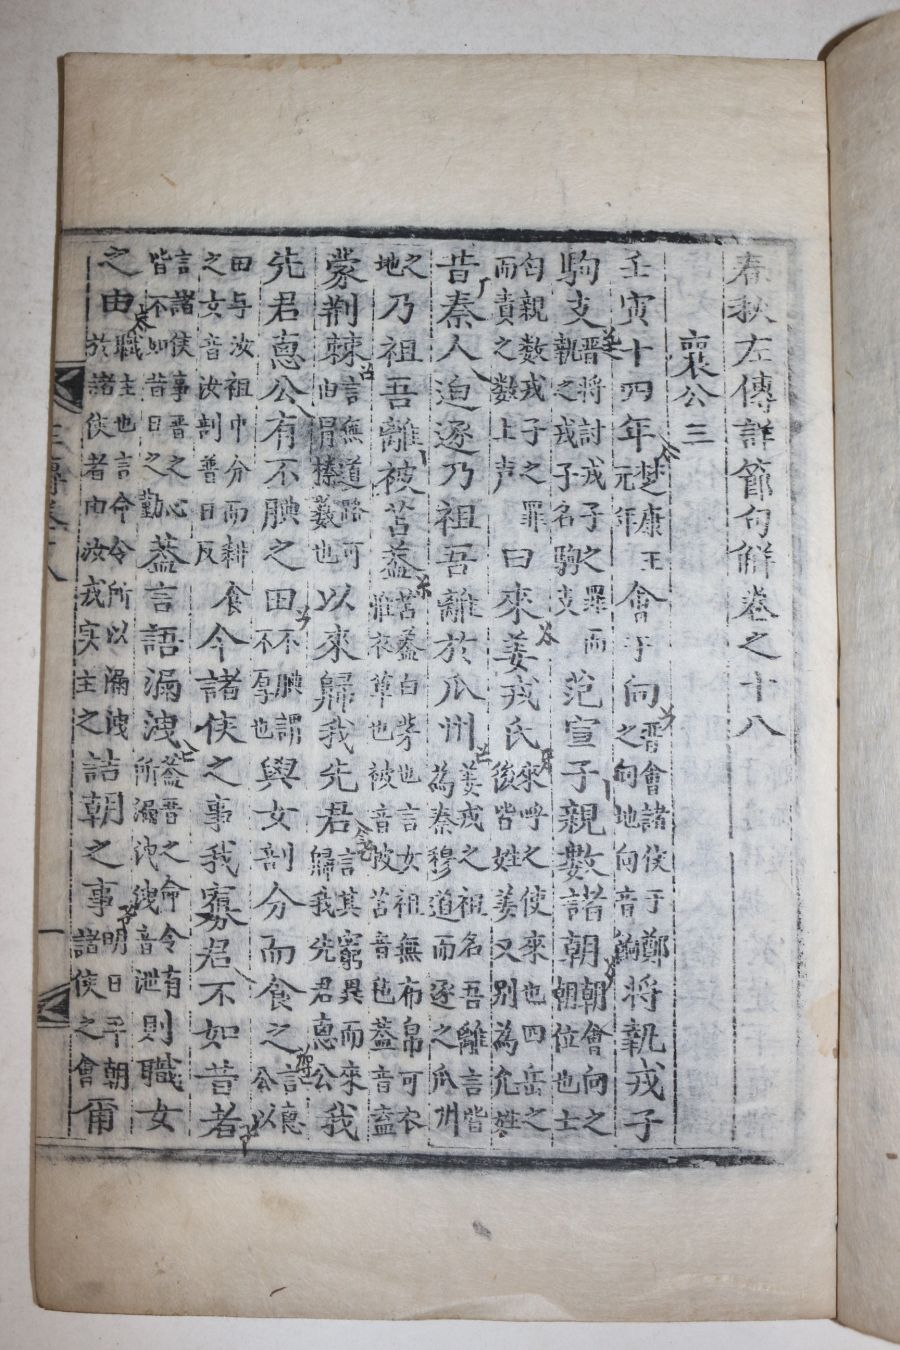 春秋左傳詳節句解卷之十八
襄公三
壬寅十四年元年楚康王會于向晋會諸侯于鄭之向地向音餉將執戎子
駒支晋將討戎子之罪而執之戎子名駒支范宣子親數諸朝朝會向之朝位也士
匄親數戎子之罪而責之數上声曰來姜戎氏來呼之使來也四岳之後皆姓姜又別為允姓
昔秦人迫逐乃祖吾離於瓜州姜戎之祖名吾離言昔為秦穆逼而逐之瓜州
之地乃祖吾離被苫盖苫盖白茅也言女祖無布帛可衣惟衣草也被音披苫音苫盖音盍
蒙荆棘言無道路可由冐榛藪也以來歸我先君言其窮異而來歸我先君惠公我
先君惠公有不腆之田不腆謂不厚也與女剖分而食之言惠公以
田与汝祖中分而耕之女音汝剖普口反食今諸侯之事我寡君不如昔者
言諸侯事晋之心皆不如昔日之勤盖言語漏洩盖吾之命令有所漏洩洩音泄則職女
之由職主也言命令所以漏洩於諸侯者由汝戎实主之詰朝之事明日平朝諸侯之會爾
左傳卷十八
一